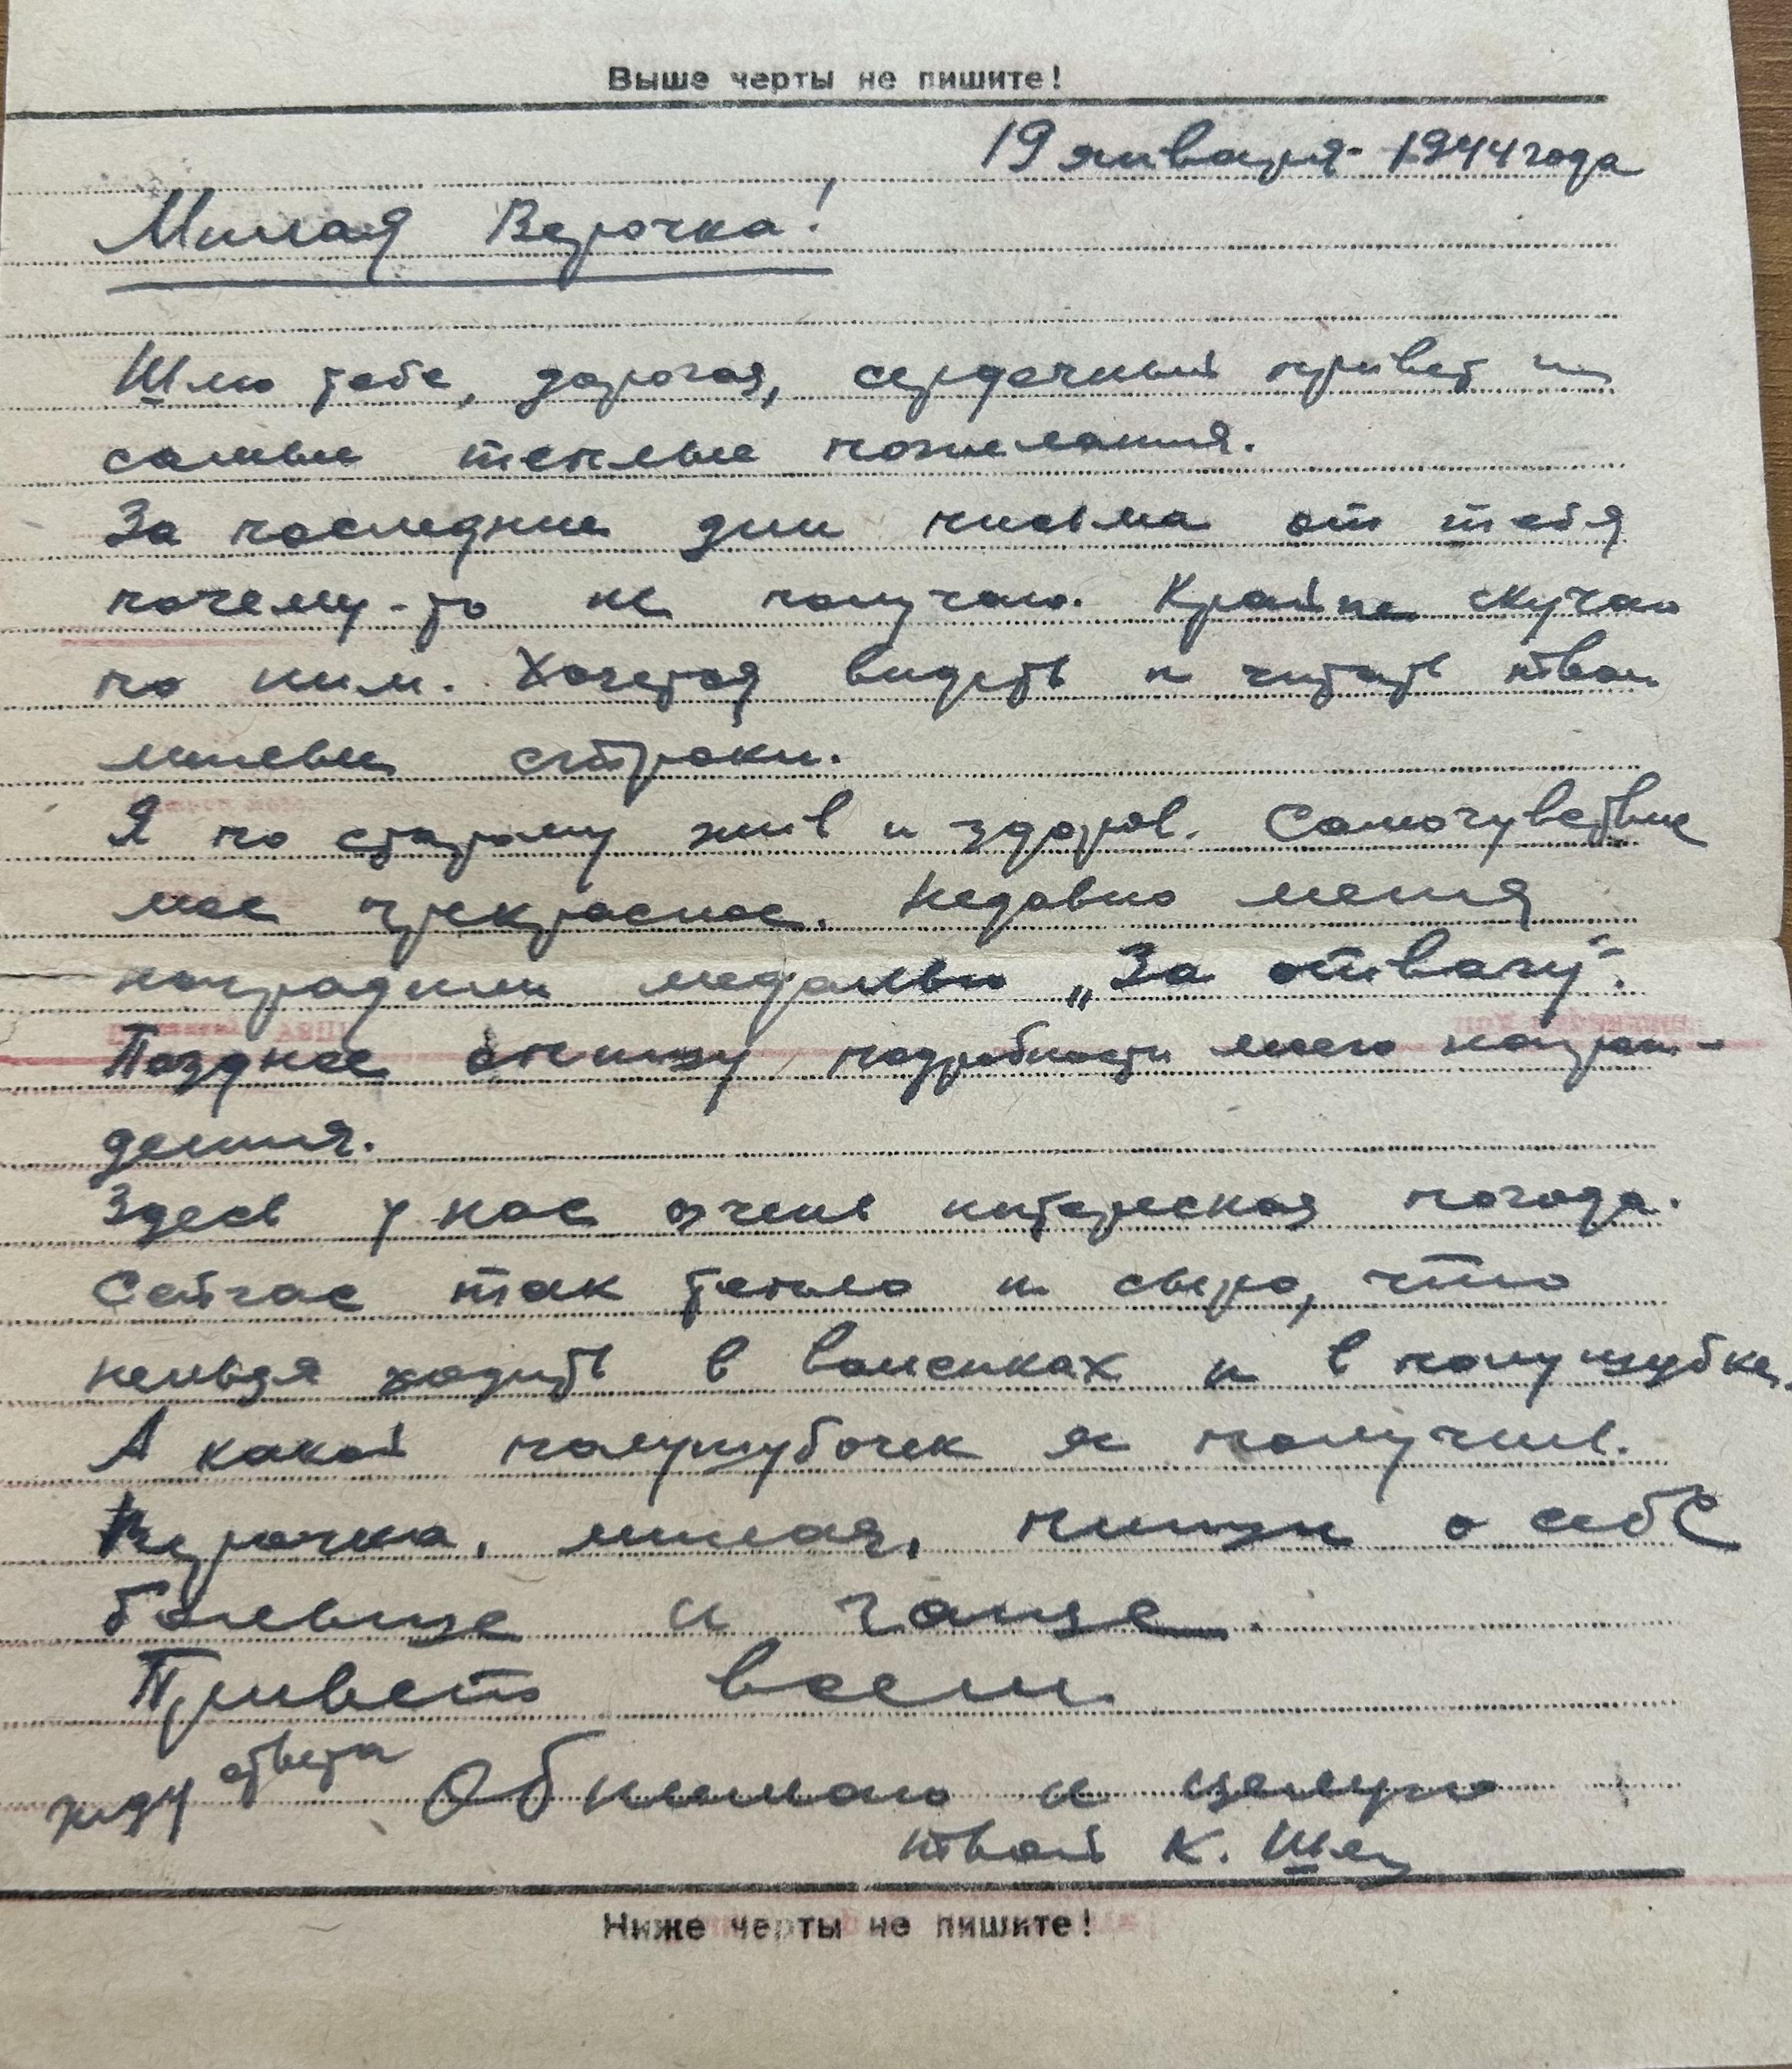 Выше черты не пишите!
19 января 1944 года
Милая Верочка!
Шлю тебе, дорогая, сердечный привет и
самые теплые пожелания.
За последние дни письма от тебя
почему-то не получаю. Крайне скучаю
по ним. Хочется видеть и читать твои
милые строки.
Я по старому жив и здоров. Самочувствие
мое прекрасное. Недавно меня
наградили медалью „За отвагу".
Позднее опишу подробности моего награж-
дения.
Здесь у нас очень интересная погода.
Сейчас так тепло и сыро, что
нельзя ходить в валенках и в полушубке.
А какой полушубочек я получил.
Верочка, милая, пиши о себе
больше и чаще.
Привет всем
жду ответа
Обнимаю и целую
твой К.
Ниже черты не пишите!